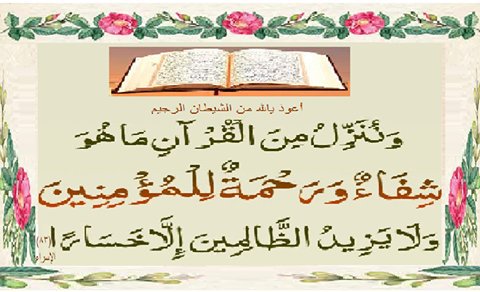 أعوذ بالله من الشيطان الرجيم
وَنُنَزِّلُ مِنَ الْقُرْآنِ مَا هُوَ
شِفَاءٌ وَرَحْمَةٌ لِلْمُؤْمِنِينَ
وَلَا يَزِيدُ الظَّالِمِينَ إِلَّا خَسَارًا (٨٢)
الإسراء